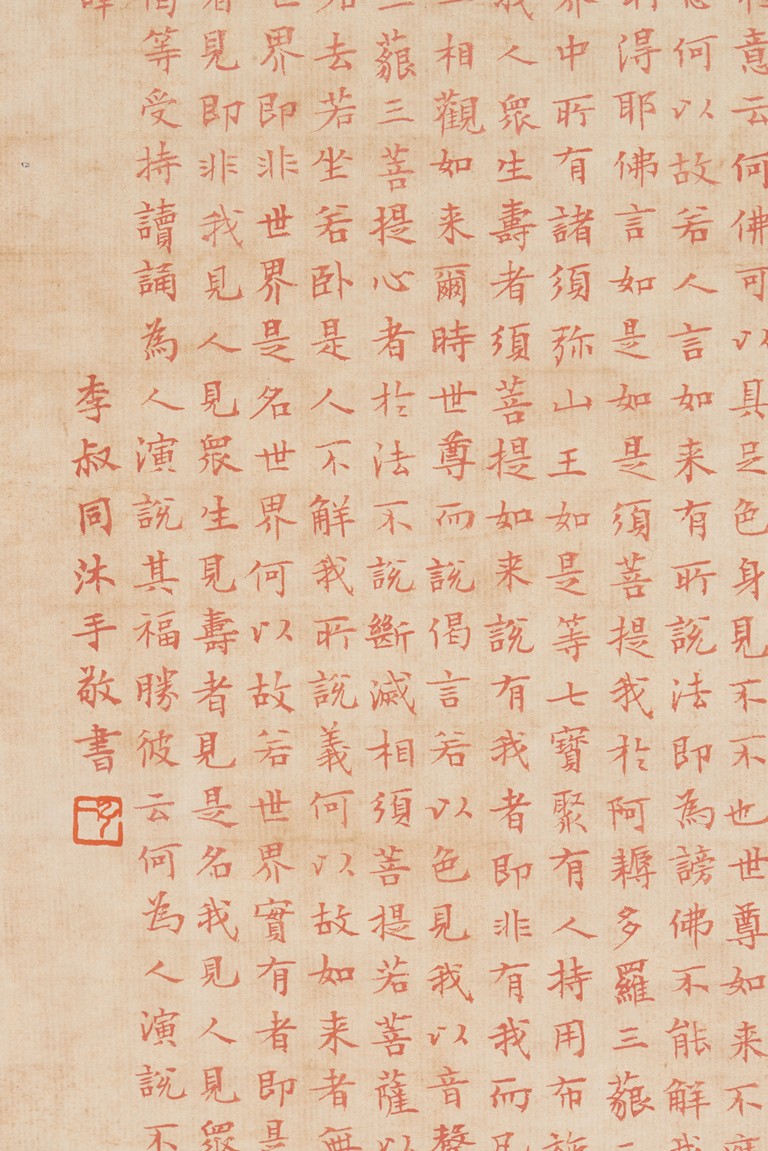 意云何佛可以具足色身見不不也世尊如来不
何以故若人言如来有所說法即為謗佛不能解我
得耶佛言如是如是須菩提我於阿耨多羅三藐
界中所有諸須弥山王如是等七寶聚有人持用布施
我人衆生壽者須菩提如来說有我者即非有我而凡
相觀如来爾時世尊而說偈言若以色見我以音聲
三藐三菩提心者於法不說斷滅相須菩提若菩薩以
若去若坐若卧是人不解我所說義何以故如来者無
世界即非世界是名世界何以故若世界實有者即是
者見即非我見人見衆生見壽者見是名我見人見衆
等受持讀誦為人演說其福勝彼云何為人演說不
李叔同沐手敬書